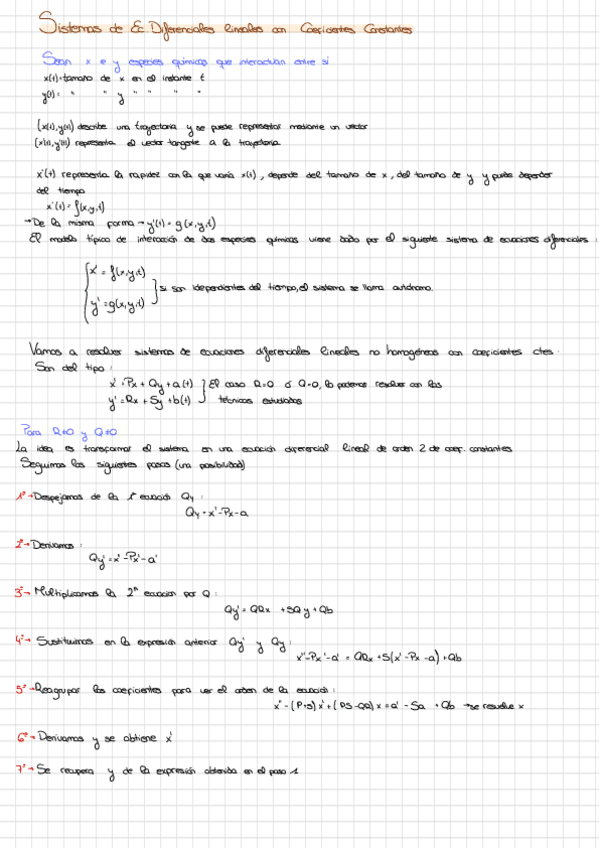 Sistemas de Ec Diferenciales lineales con Coeficientes Constantes
Sean x e y especies químicas que interactúan entre si
x(t)=tamaño de x en el instante t
y(t)= " " y " " " "
(x(t),y(t)) describe una trayectoria y se puede representar mediante un vector
(x'(t),y'(t)) representa el vector tangente a la trayectoria
x'(t) representa la rapidez con la que varía x(t), depende del tamaño de x, del tamaño de y y puede depender
del tiempo
x'(t)=f(x,y,t)
→De la misma forma→y'(t)=g(x,y,t)
El modelo típico de interacción de dos especies químicas viene dado por el siguiente sistema de ecuaciones diferenciales:
x'=f(x,y,t)
si son idependientes del tiempo, el sistema se llama autónomo.
y'=g(x,y,t)
Vamos a resolver sistemas de ecuaciones diferenciales lineales no homogéneas con coeficientes ctes.
Son del tipo:
x'=Px+Qy+a(t) } El caso R=0 ó Q=0, lo podemos resolver con las
y'=Rx+Sy+b(t) } técnicas estudiadas
Para R≠0 y Q≠0
La idea es transformar el sistema en una ecuación diferencial lineal de orden 2 de coef. constantes
Seguimos los siguientes pasos (una posibilidad)
1º→Despejamos de la 1ª ecuación Qy:
Qy=x'-Px-a
2º→Derivamos:
Qy'=x''-Px'-a'
3º→Multiplicamos la 2ª ecuación por Q:
Qy'=QRx+SQy+Qb
4º→Sustituimos en la expresión anterior Qy' y Qy:
x''-Px'-a'=QRx+S(x'-Px-a)+Qb
5º→Reagrupar los coeficientes para ver el orden de la ecuació:
x''-(P+S)x'+(PS-QR)x=a'-Sa+Qb →se resuelve x
6º→Derivamos y se obtiene x'
7º→Se recupera y de la expresión obtenida en el paso 1